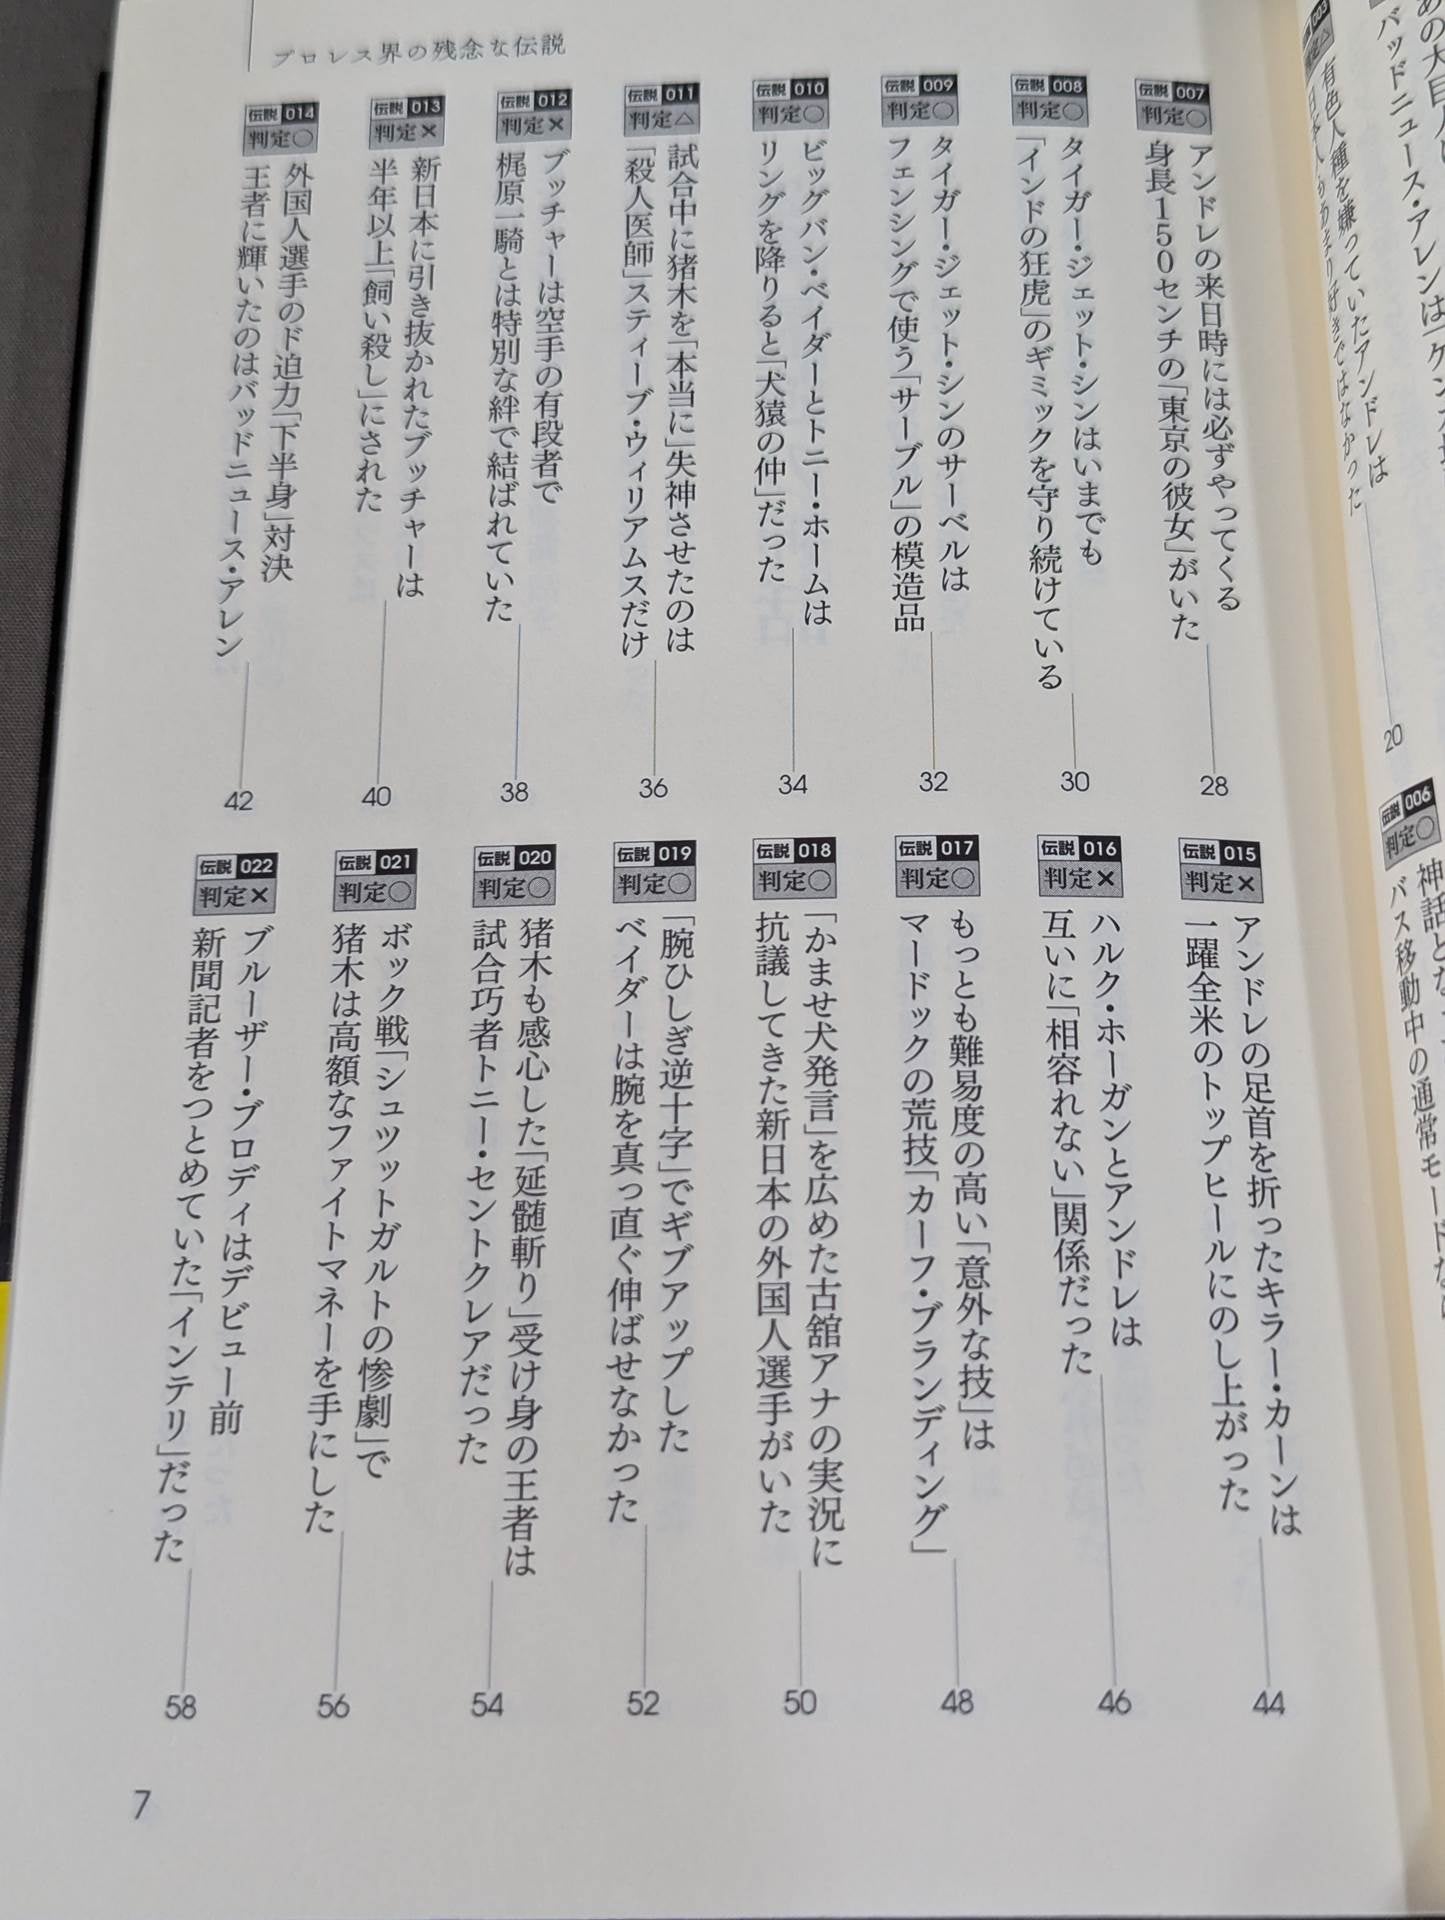 プロレス界の残念な伝説
あの大巨人に
バッドニュース・アレンは
003
有色人種を嫌っていたアンドレは
日本人もあまり好きではなかった
20
伝説 006
判定○
バス移動中の通常モード
伝説 007
判定○
アンドレの来日時には必ずやってくる
身長150センチの「東京の彼女」がいた
28
伝説 008
判定○
タイガー・ジェット・シンはいまでも
「インドの狂虎」のギミックを守り続けている
30
伝説 009
判定○
タイガー・ジェット・シンのサーベルは
フェンシングで使う「サーブル」の模造品
32
伝説 010
判定○
ビッグバン・ベイダーとトニー・ホームは
リングを降りると「犬猿の仲」だった
34
伝説 011
判定△
試合中に猪木を「本当に」失神させたのは
「殺人医師」スティーブ・ウィリアムスだけ
36
伝説 012
判定×
ブッチャーは空手の有段者で
梶原一騎とは特別な絆で結ばれていた
38
伝説 013
判定×
新日本に引き抜かれたブッチャーは
半年以上「飼い殺し」にされた
40
伝説 014
判定○
外国人選手のド迫力「下半身」対決
王者に輝いたのはバッドニュース・アレン
42
伝説 015
判定×
アンドレの足首を折ったキラー・カーンは
一躍全米のトップヒールにのし上がった
44
伝説 016
判定×
ハルク・ホーガンとアンドレは
互いに「相容れない」関係だった
46
伝説 017
判定○
もっとも難易度の高い「意外な技」は
マードックの荒技「カーフ・ブランディング」
48
伝説 018
判定○
「かませ犬発言」を広めた古舘アナの実況に
抗議してきた新日本の外国人選手がいた
50
伝説 019
判定○
「腕ひしぎ逆十字」でギブアップした
ベイダーは腕を真っ直ぐ伸ばせなかった
52
伝説 020
判定○
猪木も感心した「延髄斬り」受け身の王者は
試合巧者トニー・セントクレアだった
54
伝説 021
判定○
ボック戦「シュツットガルトの惨劇」で
猪木は高額なファイトマネーを手にした
56
伝説 022
判定×
ブルーザー・ブロディはデビュー前
新聞記者をつとめていた「インテリ」だった
58
7